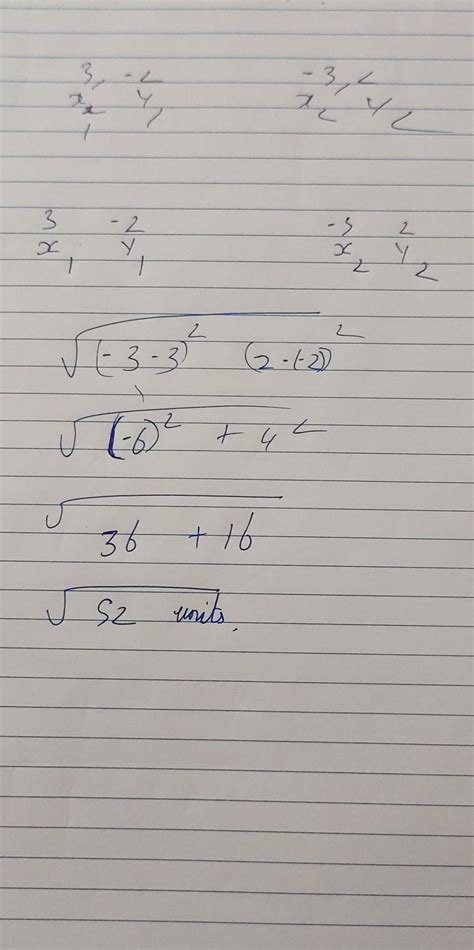 3, -2 -3, 2
x₁ y₁ x₂ y₂
3 -2 -3 2
x₁ y₁ x₂ y₂
√(-3-3)² (2-(-2))²
√(-6)² + 4²
√36 + 16
√52 units.